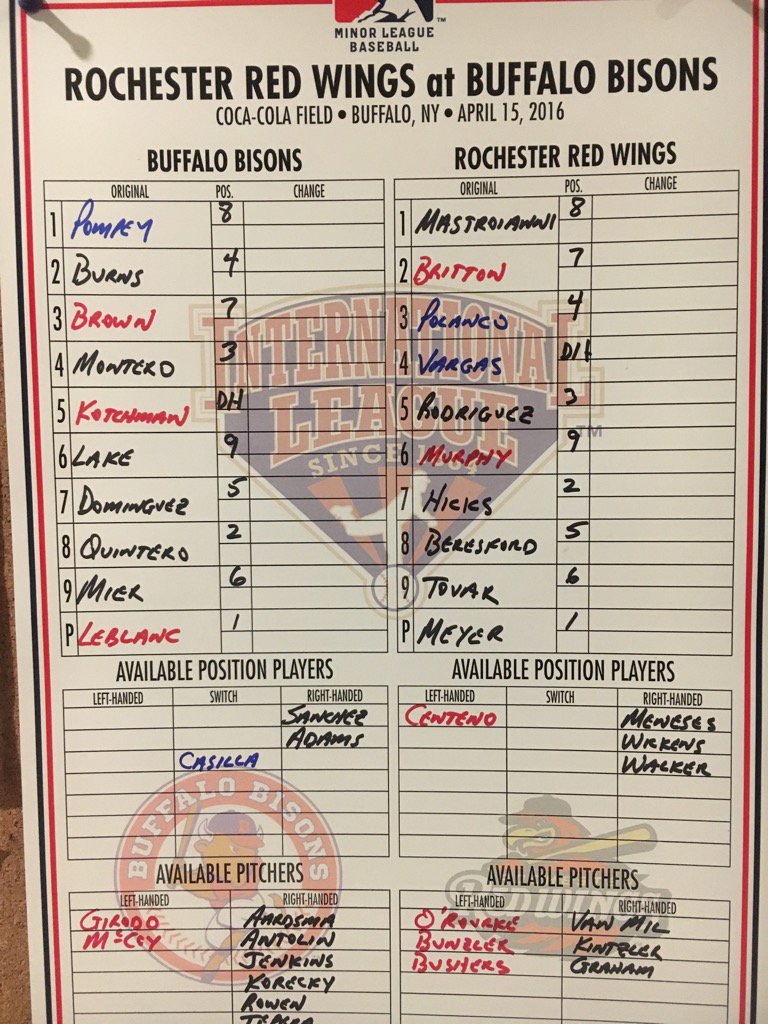 MINOR LEAGUE
BASEBALL
ROCHESTER RED WINGS at BUFFALO BISONS
COCA-COLA FIELD • BUFFALO, NY • APRIL 15, 2016
BUFFALO BISONS
ORIGINAL POS. CHANGE
1 POMPEY 8
2 BURNS 4
3 BROWN 7
4 MONTERO 3
5 KOTCHMAN DH
6 LAKE 9
7 DOMINGUEZ 5
8 QUINTERO 2
9 MIER 6
P LEBLANC 1
ROCHESTER RED WINGS
ORIGINAL POS. CHANGE
1 MASTROIANNI 8
2 BRITTON 7
3 POLANCO 4
4 VARGAS DH
5 RODRIGUEZ 3
6 MURPHY 9
7 HICKS 2
8 BERESFORD 5
9 TOVAR 6
P MEYER 1
INTERNATIONAL
LEAGUE
SINCE
TM
AVAILABLE POSITION PLAYERS
LEFT-HANDED SWITCH RIGHT-HANDED
SANCHEZ
ADAMS
CASILLA
AVAILABLE POSITION PLAYERS
LEFT-HANDED SWITCH RIGHT-HANDED
CENTENO MENESES
WICKENS
WALKER
BUFFALO BISONS
AVAILABLE PITCHERS
LEFT-HANDED RIGHT-HANDED
GIRODO AARDSMA
McCOY ANTOLIN
JENKINS
KORECKY
ROWEN
TEPERA
AVAILABLE PITCHERS
LEFT-HANDED RIGHT-HANDED
O'ROURKE VAN MIL
BUNZLER KINTZLER
BUSHERS GRAHAM